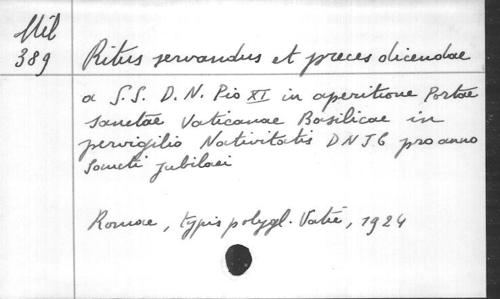 Mil
389
Ritus servandus et preces dicendae
a S.S. D.N. Pio XI in aperitione Portae
sanctae Vaticanae Basilicae in
pervigilio Nativitatis DNJC pro anno
Sancti jubilaei
Romae, typis polygl. Vatic, 1924